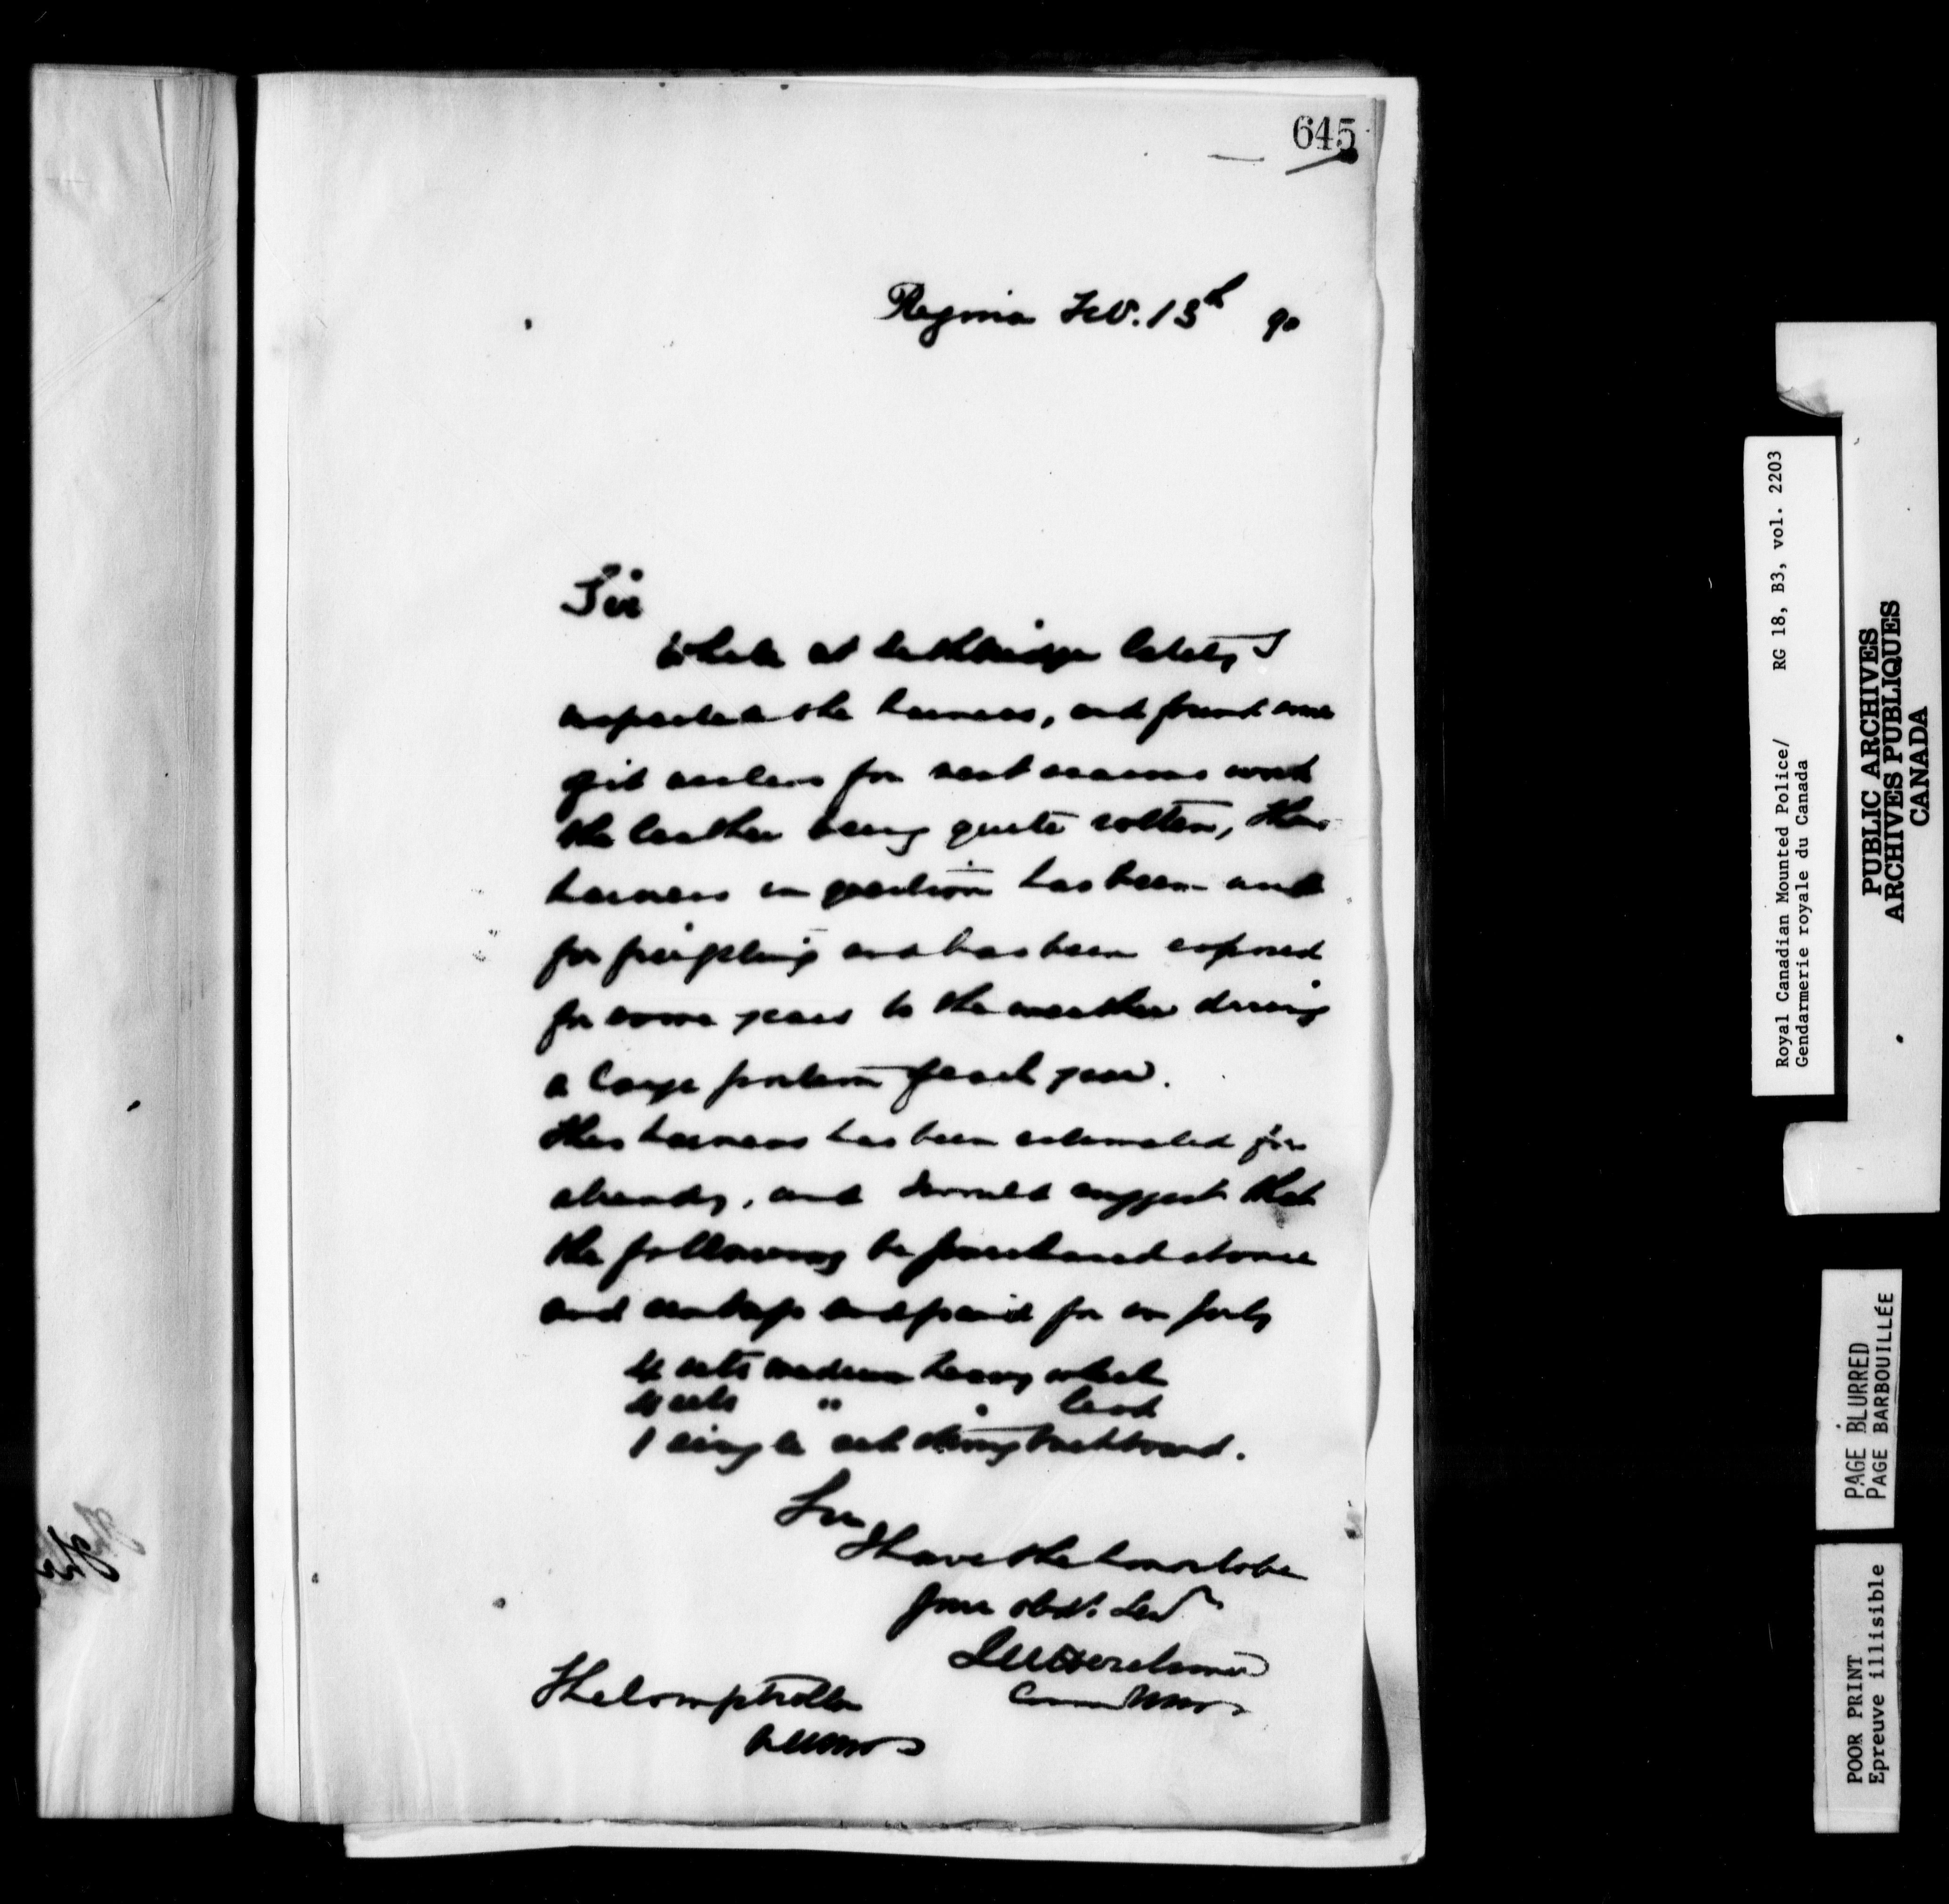 645
Regina Feb. 13th 90
Sir
While at Lethbridge lately I
inspected the harness, and found some
quite useless for next seasons work
the leather being quite rotten, the
harness in question has been used
for freighting and has been exposed
for some years to the weather during
a large portion of each year.
This harness has been estimated for
already, and I would suggest that
the following be purchased at once
and and paid for in July
4 sets medium heavy wheel
4 sets " " lead
1 single set strong buckboard.
Sir
I have the honor to be
Your obdt. Servt
L W Herchmer
Comr NWMP
The Comptroller
NWMP
Royal Canadian Mounted Police/ RG 18, B3, vol. 2203
Gendarmerie royale du Canada
PUBLIC ARCHIVES
ARCHIVES PUBLIQUES
CANADA
PAGE BLURRED
PAGE BARBOUILLÉE
POOR PRINT
Epreuve illisible